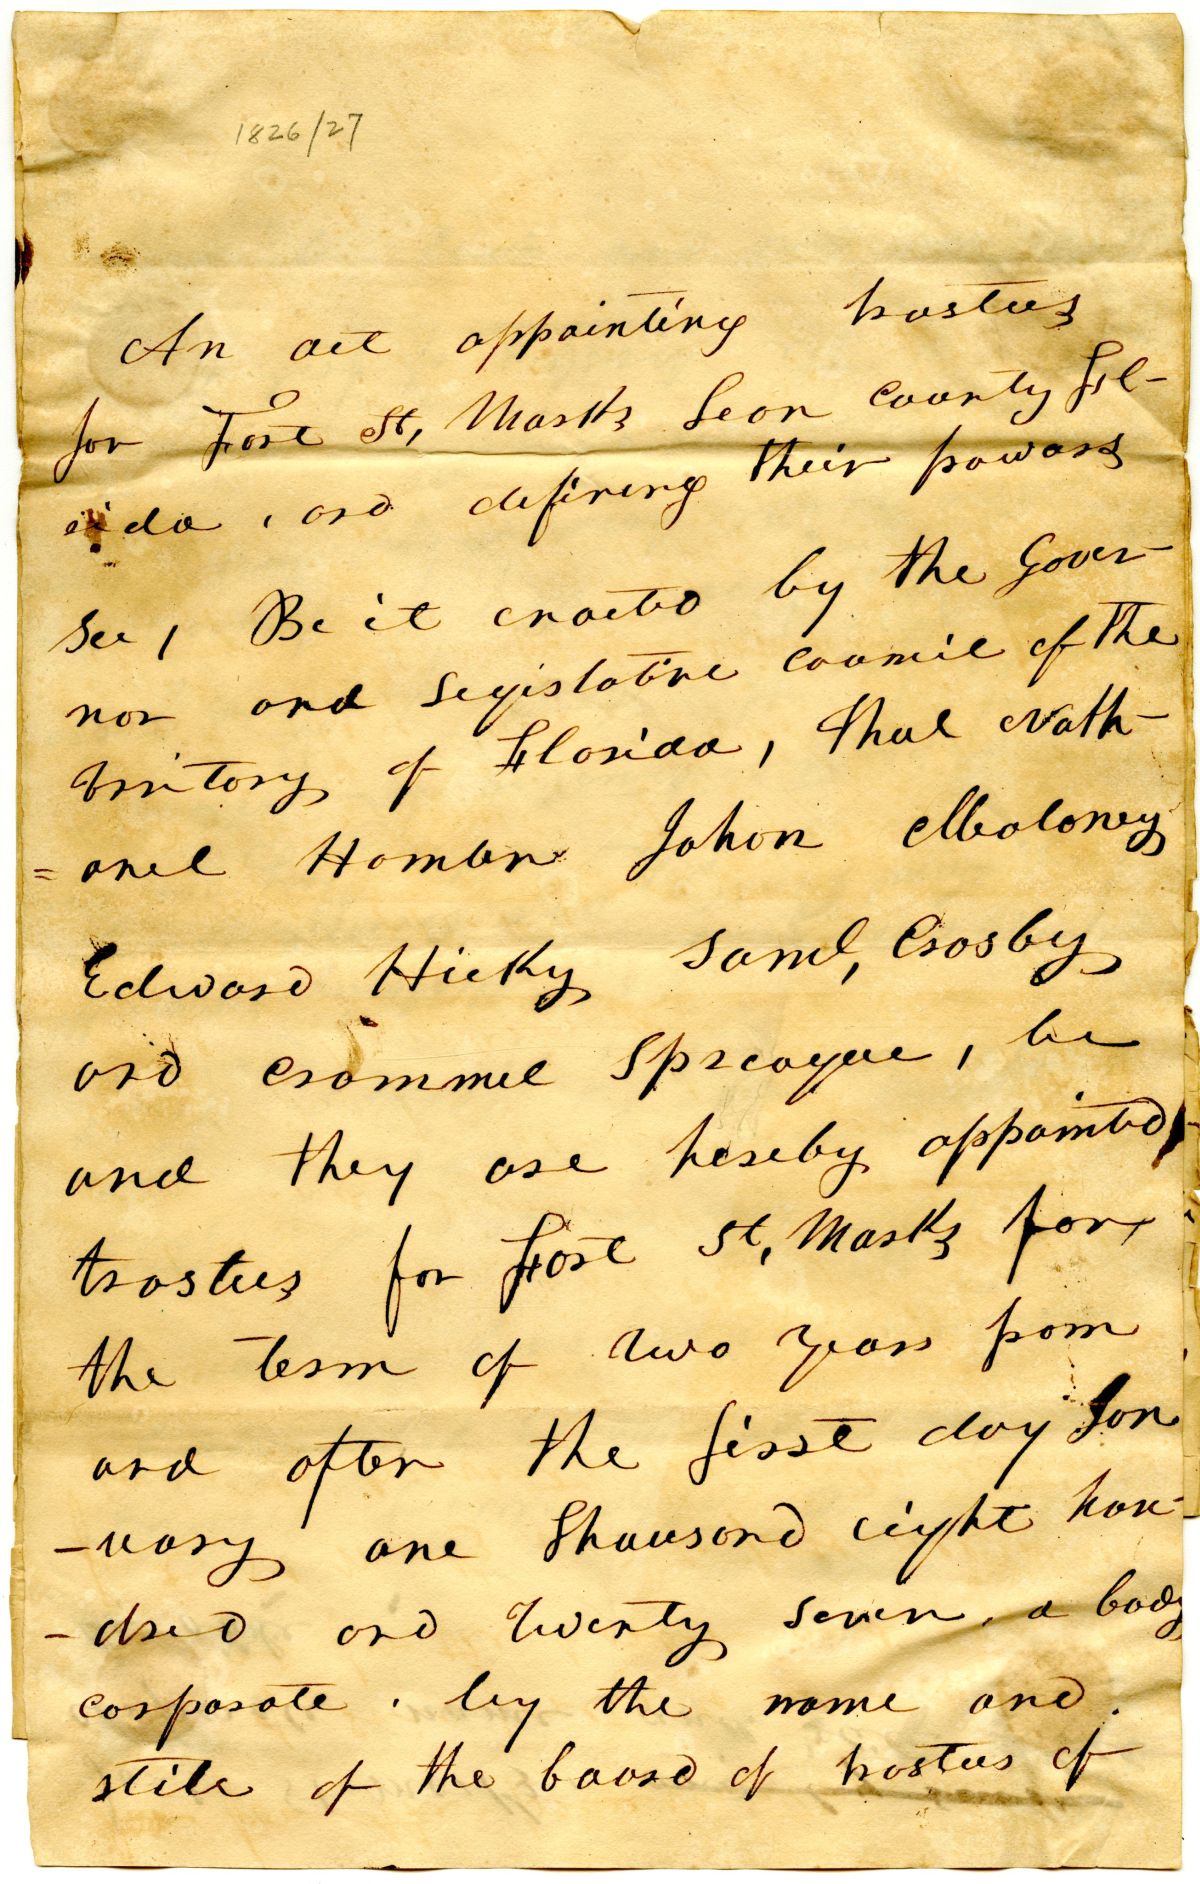 1826/27
An act appointing trustees
for Fort St, Marks Leon County Fl-
orida, and defining their powers
Sec, Be it enacted by the Gover-
nor and Legislative council of the
territory of Florida, that Nath-
=aniel Hamlen John Maloney
Edward Hicky Saml, Crosby
and Crommel Spreague, be
and they are hereby appointed
trustees for Fort St, Marks for
the term of two years from
and after the first day Jan
-uary one thousand eight hun-
-dred and twenty seven, a body
corporate. by the name and.
stile of the board of trustees of